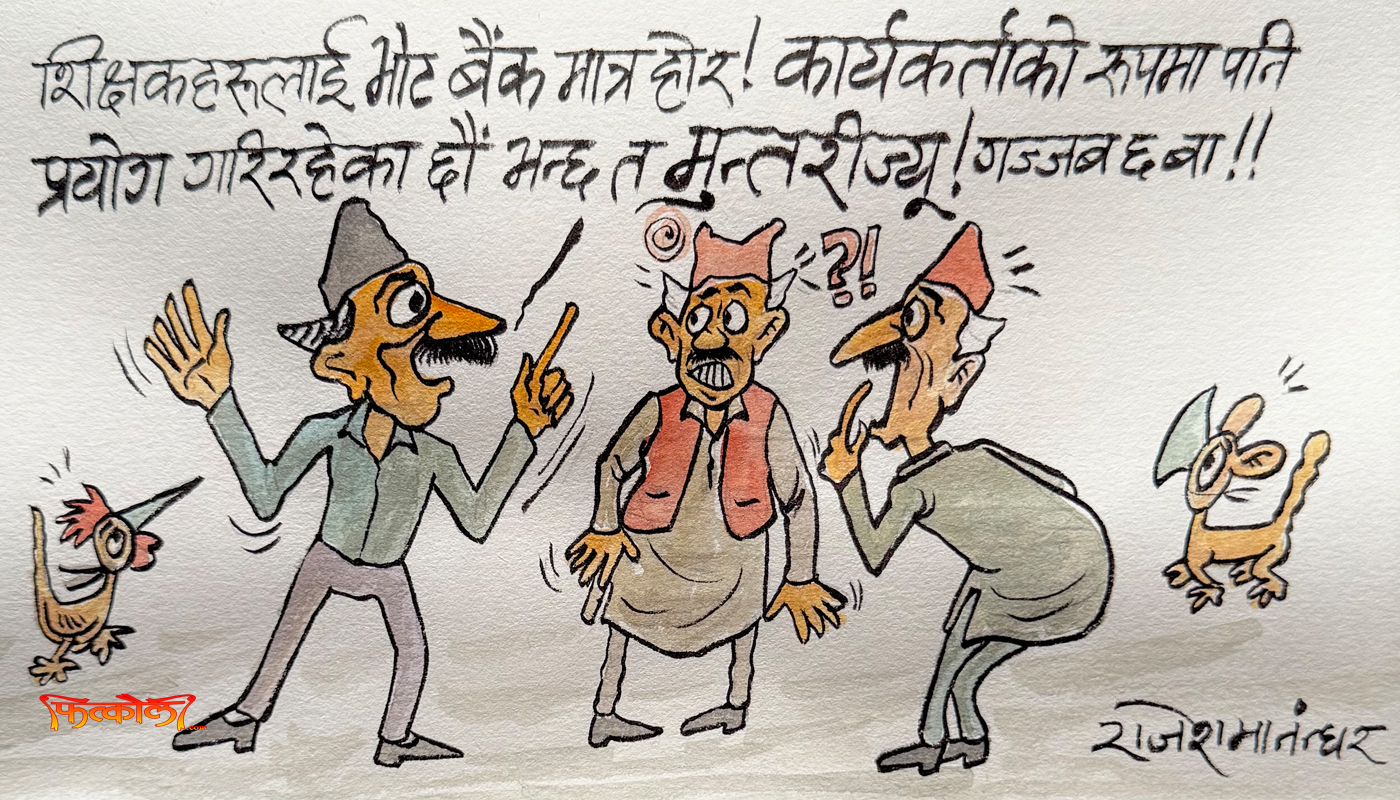 शिक्षकहरूलाई भोट बैंक मात्र होर! कार्यकर्ताको रूपमा पनि
प्रयोग गरिरहेका छौं भन्छ त मुन्तरीज्यू! गज्जब छ बा!!
?!
फित्कौली
.com
राजेशमानन्धर